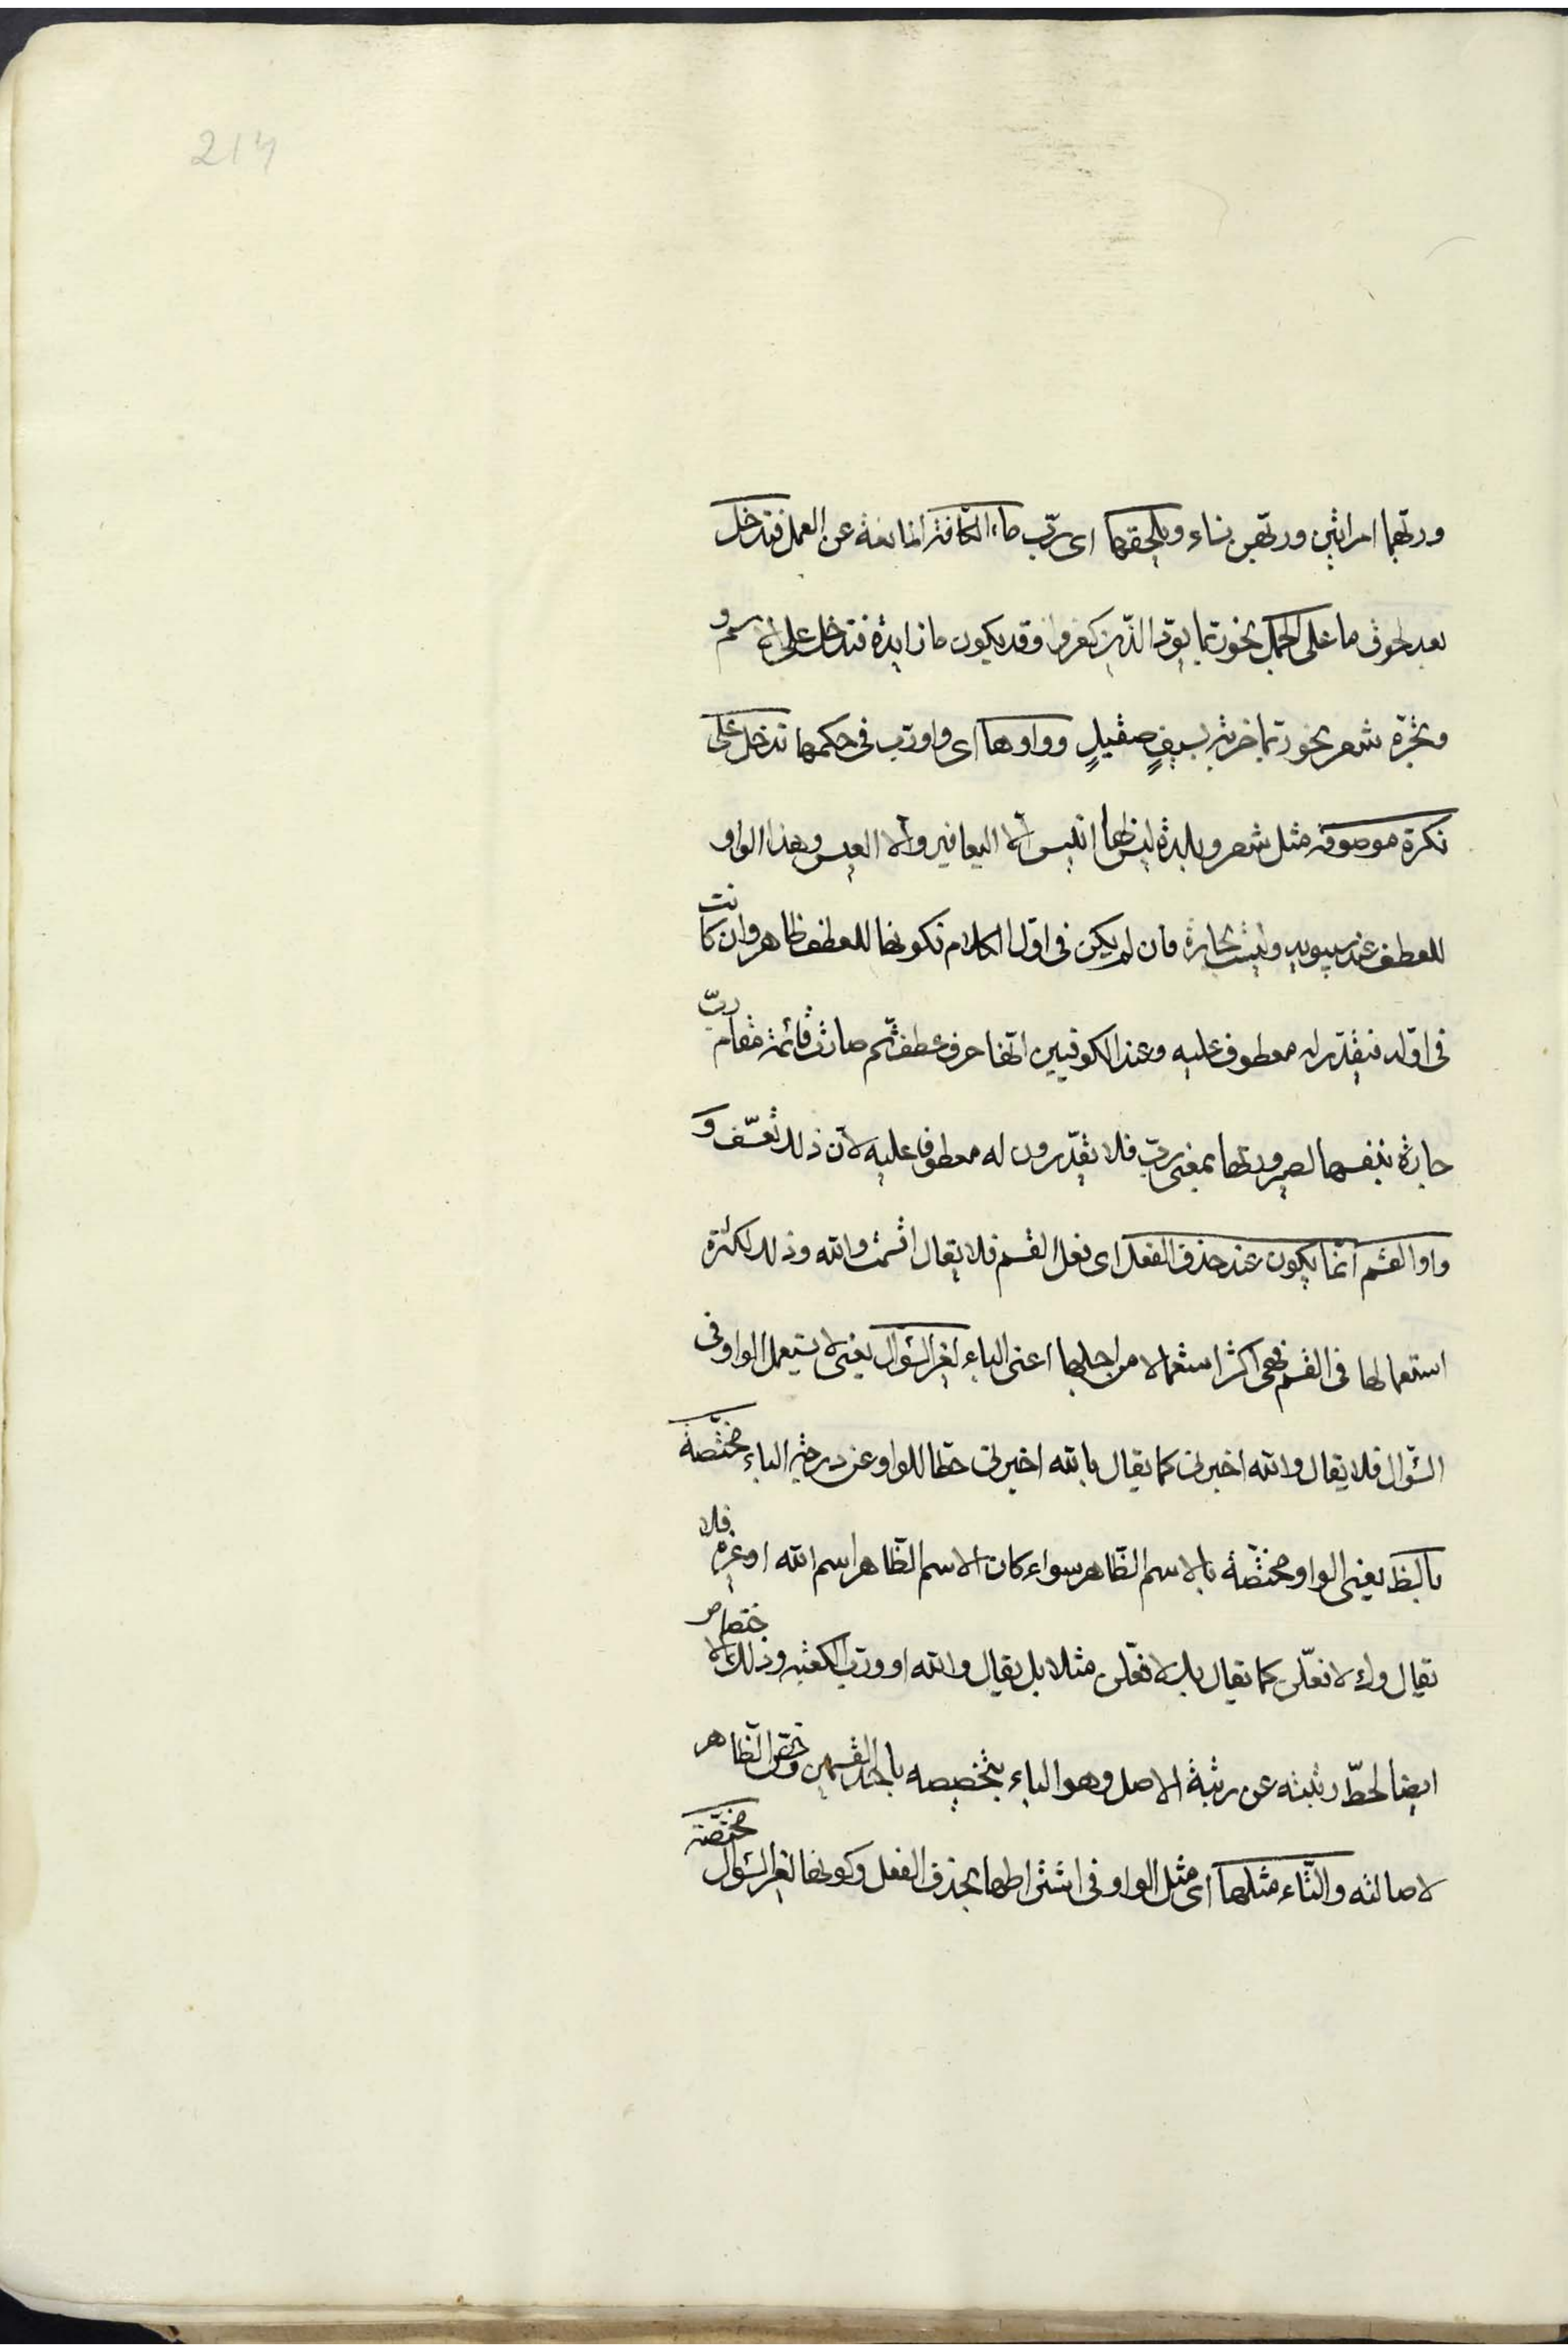 214
وربّهما امراتين وربّهن نساء ويلحقها اى ربّ ماء الكافة المانعة عن العمل فتدخل
بعد لحوق ما على الجمل نحو ربّما يودّ الذّين كفروا وقد يكون ما زايدة فتدخل على الاسم و
تجرّه شعر نحو ربّما ضربة بسيفٍ صقيلٍ وواوها اى واو ربّ فى حكمها تدخل على
نكرة موصوفة مثل شعر وبلدة ليس بها انيس الّا اليعافير والّا العيس وهذا الواو
للعطف عند سيبويه وليست بجارة فان لم يكن فى اوّل الكلام فكونها للعطف ظاهر وان كانت
فى اوّله فيقدّر له معطوف عليه وعند الكوفيين انّها حرف عطف ثمّ صارت قائمة مقام ربّ
جارة بنفسها لصيرورتها بمعنى ربّ فلا يقدّرون له معطوفا عليه لانّ ذلك تعسّف و
واو القسم انّما يكون عند حذف الفعل اى فعل القسم فلا يقال اقسمت والله وذلك لكثرة
استعمالها فى القسم فهى اكثر استعمالا من اجلها اعنى الباء لغير السّؤال يعنى لا يستعمل الواو فى
السّؤال فلا يقال والله اخبرنى كما يقال بالله اخبرنى حطّا للواو عن درجة الباء مختصّة
بالظ يعنى الواو مختصّة بالاسم الظّاهر سواء كان الاسم الظّاهر اسم الله او غيره فلا
يقال وك لافعلّن كما يقال بك لافعلّن مثلا بل يقال والله او وربّ الكعبة وذلك الاختصاص
ايضا لحطّ رتبته عن رتبة الاصل وهو الباء بتخصيصه باحد القسمين وخصّ الظّاهر
لاصالته والتّاء مثلها اى مثل الواو فى اشتراطها بحذف الفعل وكونها لغير السّؤال مختصّة